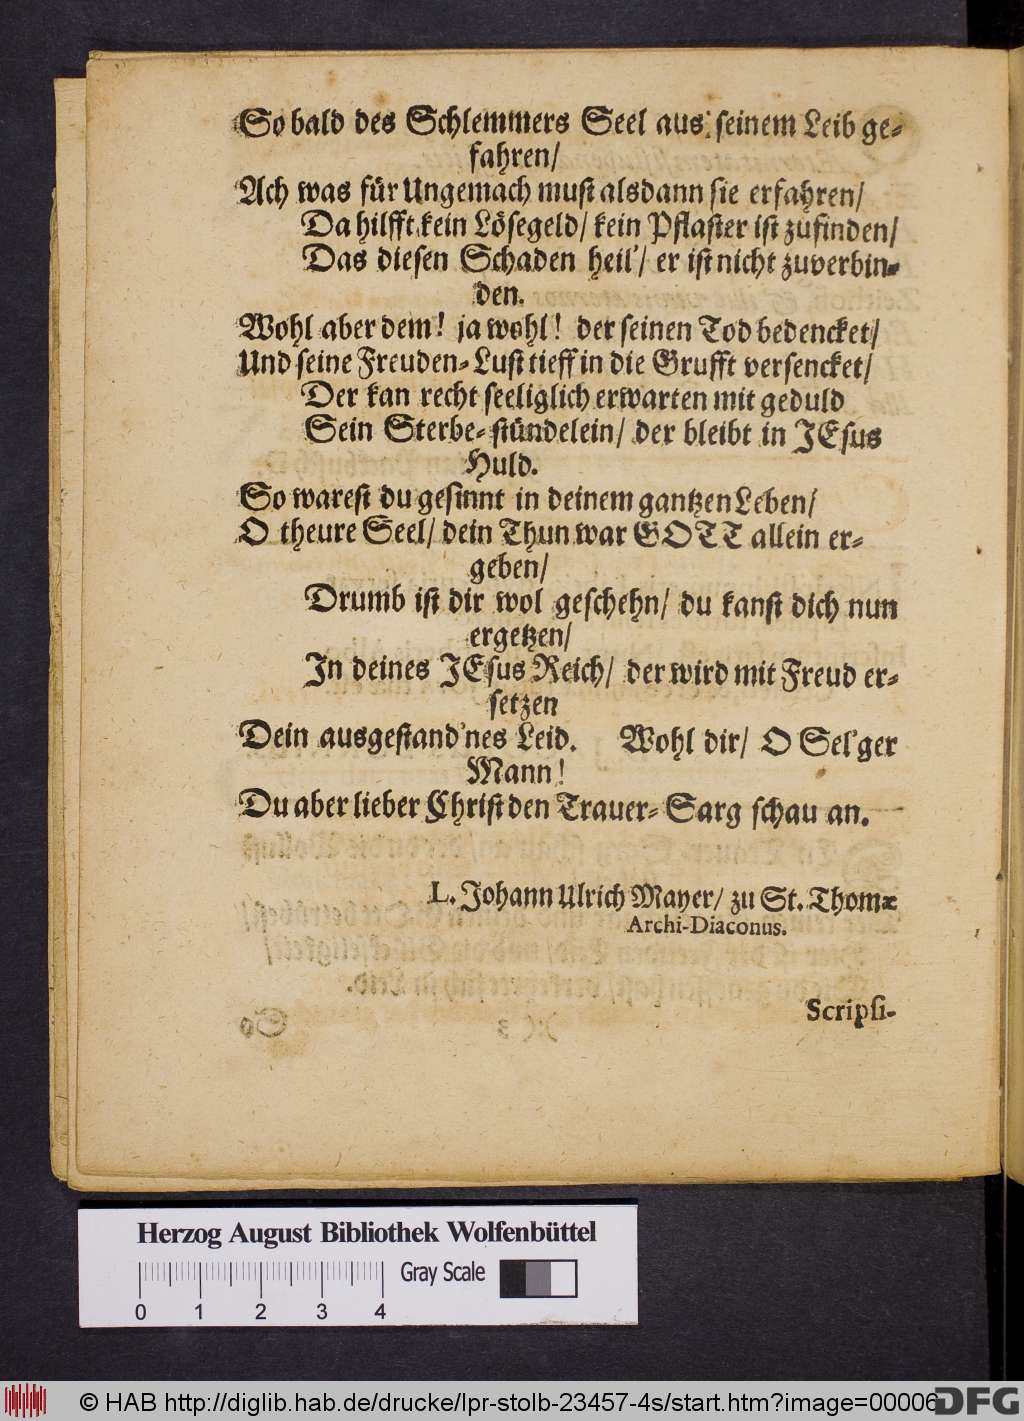 So bald des Schlemmers Seel aus seinem Leib ge-
fahren/
Ach was für Ungemach must alsdann sie erfahren/
Da hilfft kein Lösegeld/ kein Pflaster ist zufinden/
Das diesen Schaden heil'/ er ist nicht zuverbin-
den.
Wohl aber dem! ja wohl! der seinen Tod bedencket/
Und seine Freuden-Lust tieff in die Grufft versencket/
Der kan recht seeliglich erwarten mit geduld
Sein Sterbe-stündelein/ der bleibt in JEsus
Huld.
So warest du gesinnt in deinem gantzen Leben/
O theure Seel/ dein Thun war GOTT allein er-
geben/
Drumb ist dir wol geschehn/ du kanst dich nun
ergetzen/
In deines JEsus Reich/ der wird mit Freud er-
setzen
Dein ausgestand'nes Leid. Wohl dir/ O Sel'ger
Mann!
Du aber lieber Christ den Trauer-Sarg schau an.
L. Johann Ulrich Mayer/ zu St. Thomæ
Archi-Diaconus.
Scripsi-
Herzog August Bibliothek Wolfenbüttel
Gray Scale
0 1 2 3 4
© HAB http://diglib.hab.de/drucke/lpr-stolb-23457-4s/start.htm?image=00006
DFG